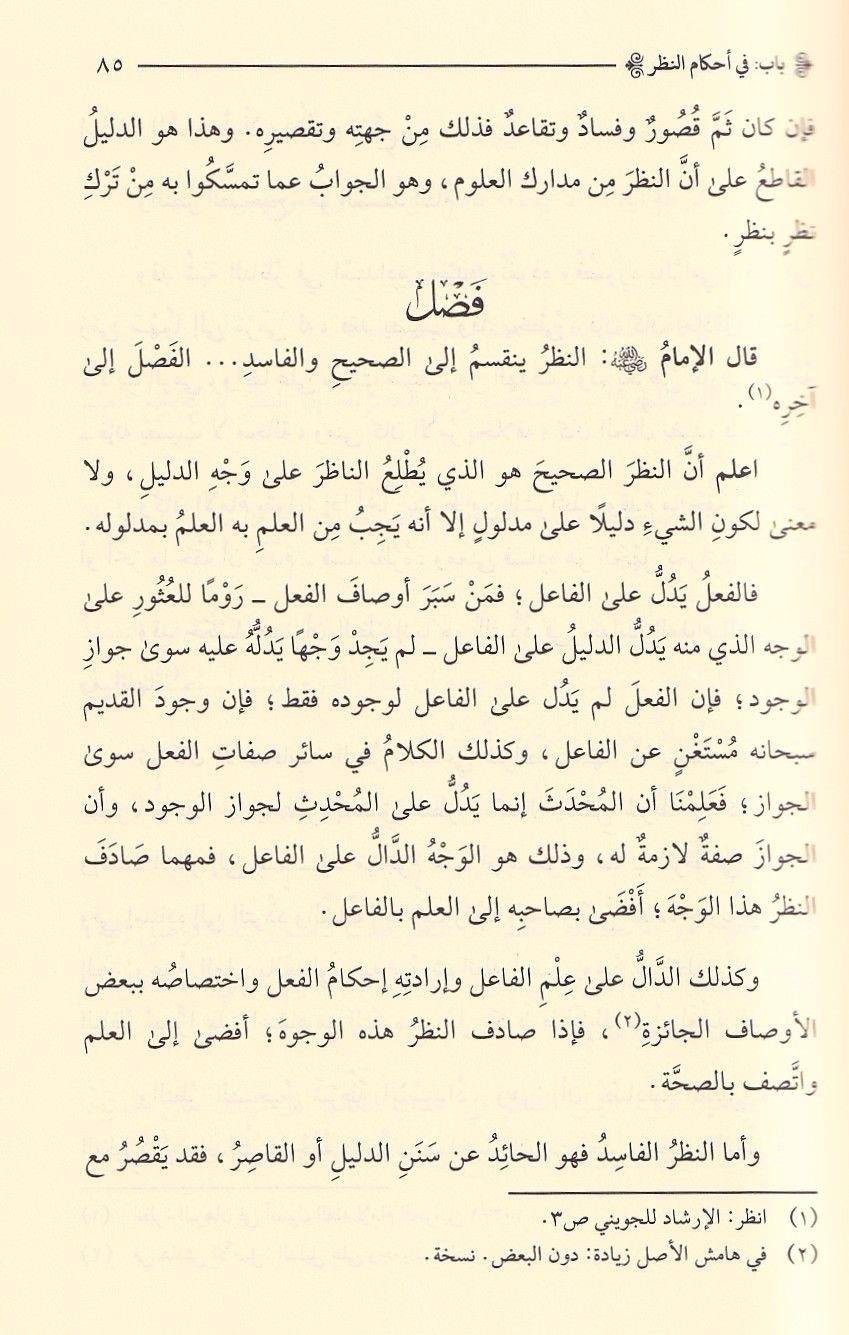 باب: في أحكام النظر ٨٥
فإن كان ثَمَّ قُصُورٌ وفسادٌ وتقاعدٌ فذلك مِنْ جهتِه وتقصيرِه. وهذا هو الدليلُ
القاطعُ علىٰ أنَّ النظرَ مِن مدارك العلوم، وهو الجوابُ عما تمسَّكُوا به مِنْ تَرْكِ
نظرٍ بنظرٍ.
فَصْل
قال الإمامُ رضي الله عنه: النظرُ ينقسمُ إلىٰ الصحيحِ والفاسدِ... الفَصْلَ إلىٰ
آخِرِه(١).
اعلم أنَّ النظرَ الصحيحَ هو الذي يُطْلِعُ الناظرَ علىٰ وَجْهِ الدليلِ، ولا
معنىٰ لكونِ الشيءِ دليلًا علىٰ مدلولٍ إلا أنه يَجِبُ مِن العلمِ به العلمُ بمدلوله.
فالفعلُ يَدُلُّ علىٰ الفاعل؛ فمَنْ سَبَرَ أوصافَ الفعل ـ رَوْمًا للعُثُورِ علىٰ
الوجه الذي منه يَدُلُّ الدليلُ علىٰ الفاعل ـ لم يَجِدْ وَجْهًا يَدُلُّهُ عليه سوىٰ جوازِ
الوجود؛ فإن الفعلَ لم يَدُل علىٰ الفاعل لوجوده فقط؛ فإن وجودَ القديم
سبحانه مُسْتَغْنٍ عن الفاعل، وكذلك الكلامُ في سائر صفاتِ الفعل سوىٰ
الجواز؛ فَعَلِمْنَا أن المُحْدَثَ إنما يَدُلُّ علىٰ المُحْدِثِ لجواز الوجود، وأن
الجوازَ صفةٌ لازمةٌ له، وذلك هو الوَجْهُ الدَّالُّ علىٰ الفاعل، فمهما صَادَفَ
النظرُ هذا الوَجْهَ؛ أَفْضَىٰ بصاحبِه إلىٰ العلم بالفاعل.
وكذلك الدَّالُّ علىٰ عِلْمِ الفاعل وإرادتِهِ إحكامُ الفعل واختصاصُه ببعض
الأوصاف الجائزةِ(٢)، فإذا صادف النظرُ هذه الوجوهَ؛ أفضىٰ إلىٰ العلم
واتَّصف بالصحَّة.
وأما النظرُ الفاسِدُ فهو الحائِدُ عن سَنَنِ الدليلِ أو القاصِرُ، فقد يَقْصُرُ مع
(١) انظر: الإرشاد للجويني ص٣.
(٢) في هامش الأصل زيادة: دون البعض. نسخة.